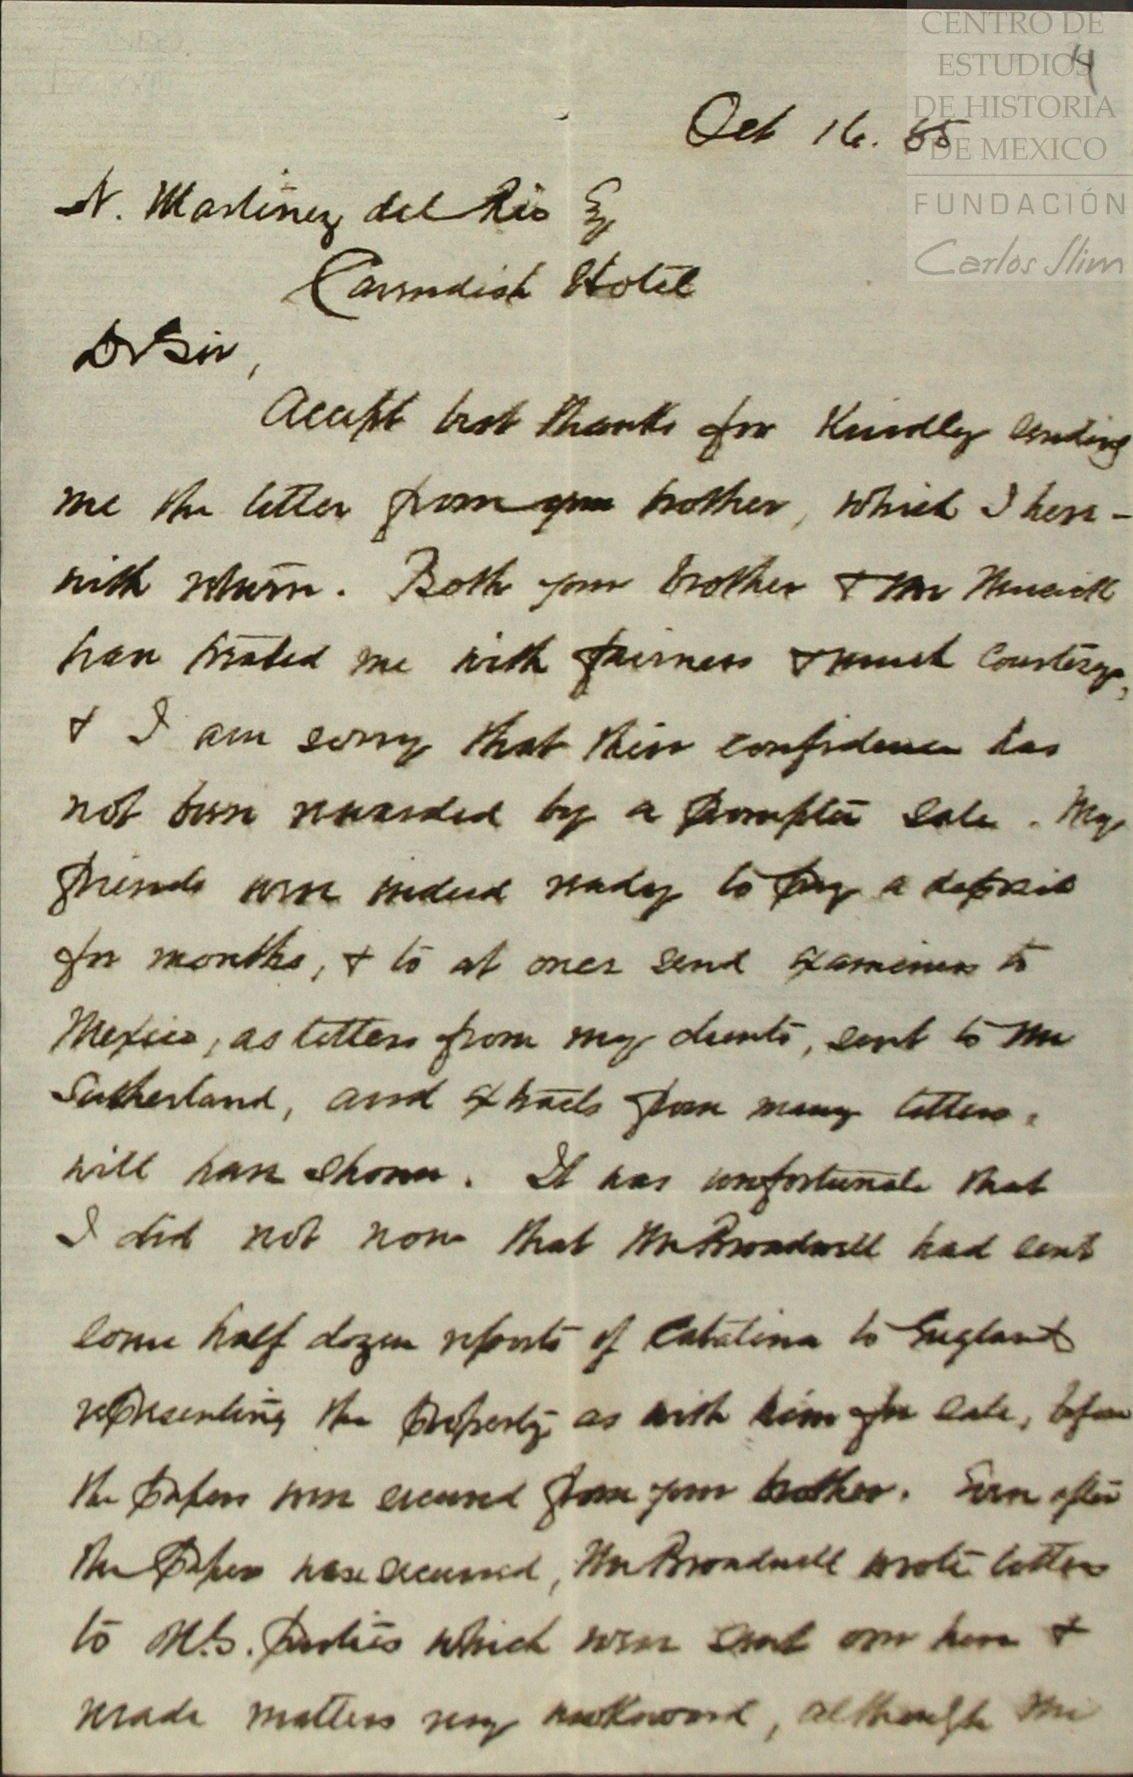 CENTRO DE
ESTUDIOS
DE HISTORIA
DE MEXICO
FUNDACIÓN
Carlos Slim
4
Oct 16. 85
N. Martinez del Rio Esq
Cavendish Hotel
Dr Sir,
Accept best thanks for kindly sending
me the letter from your brother, which I here-
with return. Both your brother & Mr
have treated me with fairness & much courtesy,
& I am sorry that their confidence has
not been rewarded by a prompter sale. My
friends were indeed ready to pay a deposit
for months, & to at once send examiners to
Mexico, as letters from my clients, sent to Mr
Sutherland, and extracts from many letters,
will have shown. It was unfortunate that
I did not now that Mr Broadwell had sent
some half dozen reports of Catalina to England
representing the property as with him for sale, before
the papers were secured from your brother. Even after
the papers were secured, Mr Broadwell wrote letters
to N.Y. parties which were sent over here &
made matters very awkward, although the